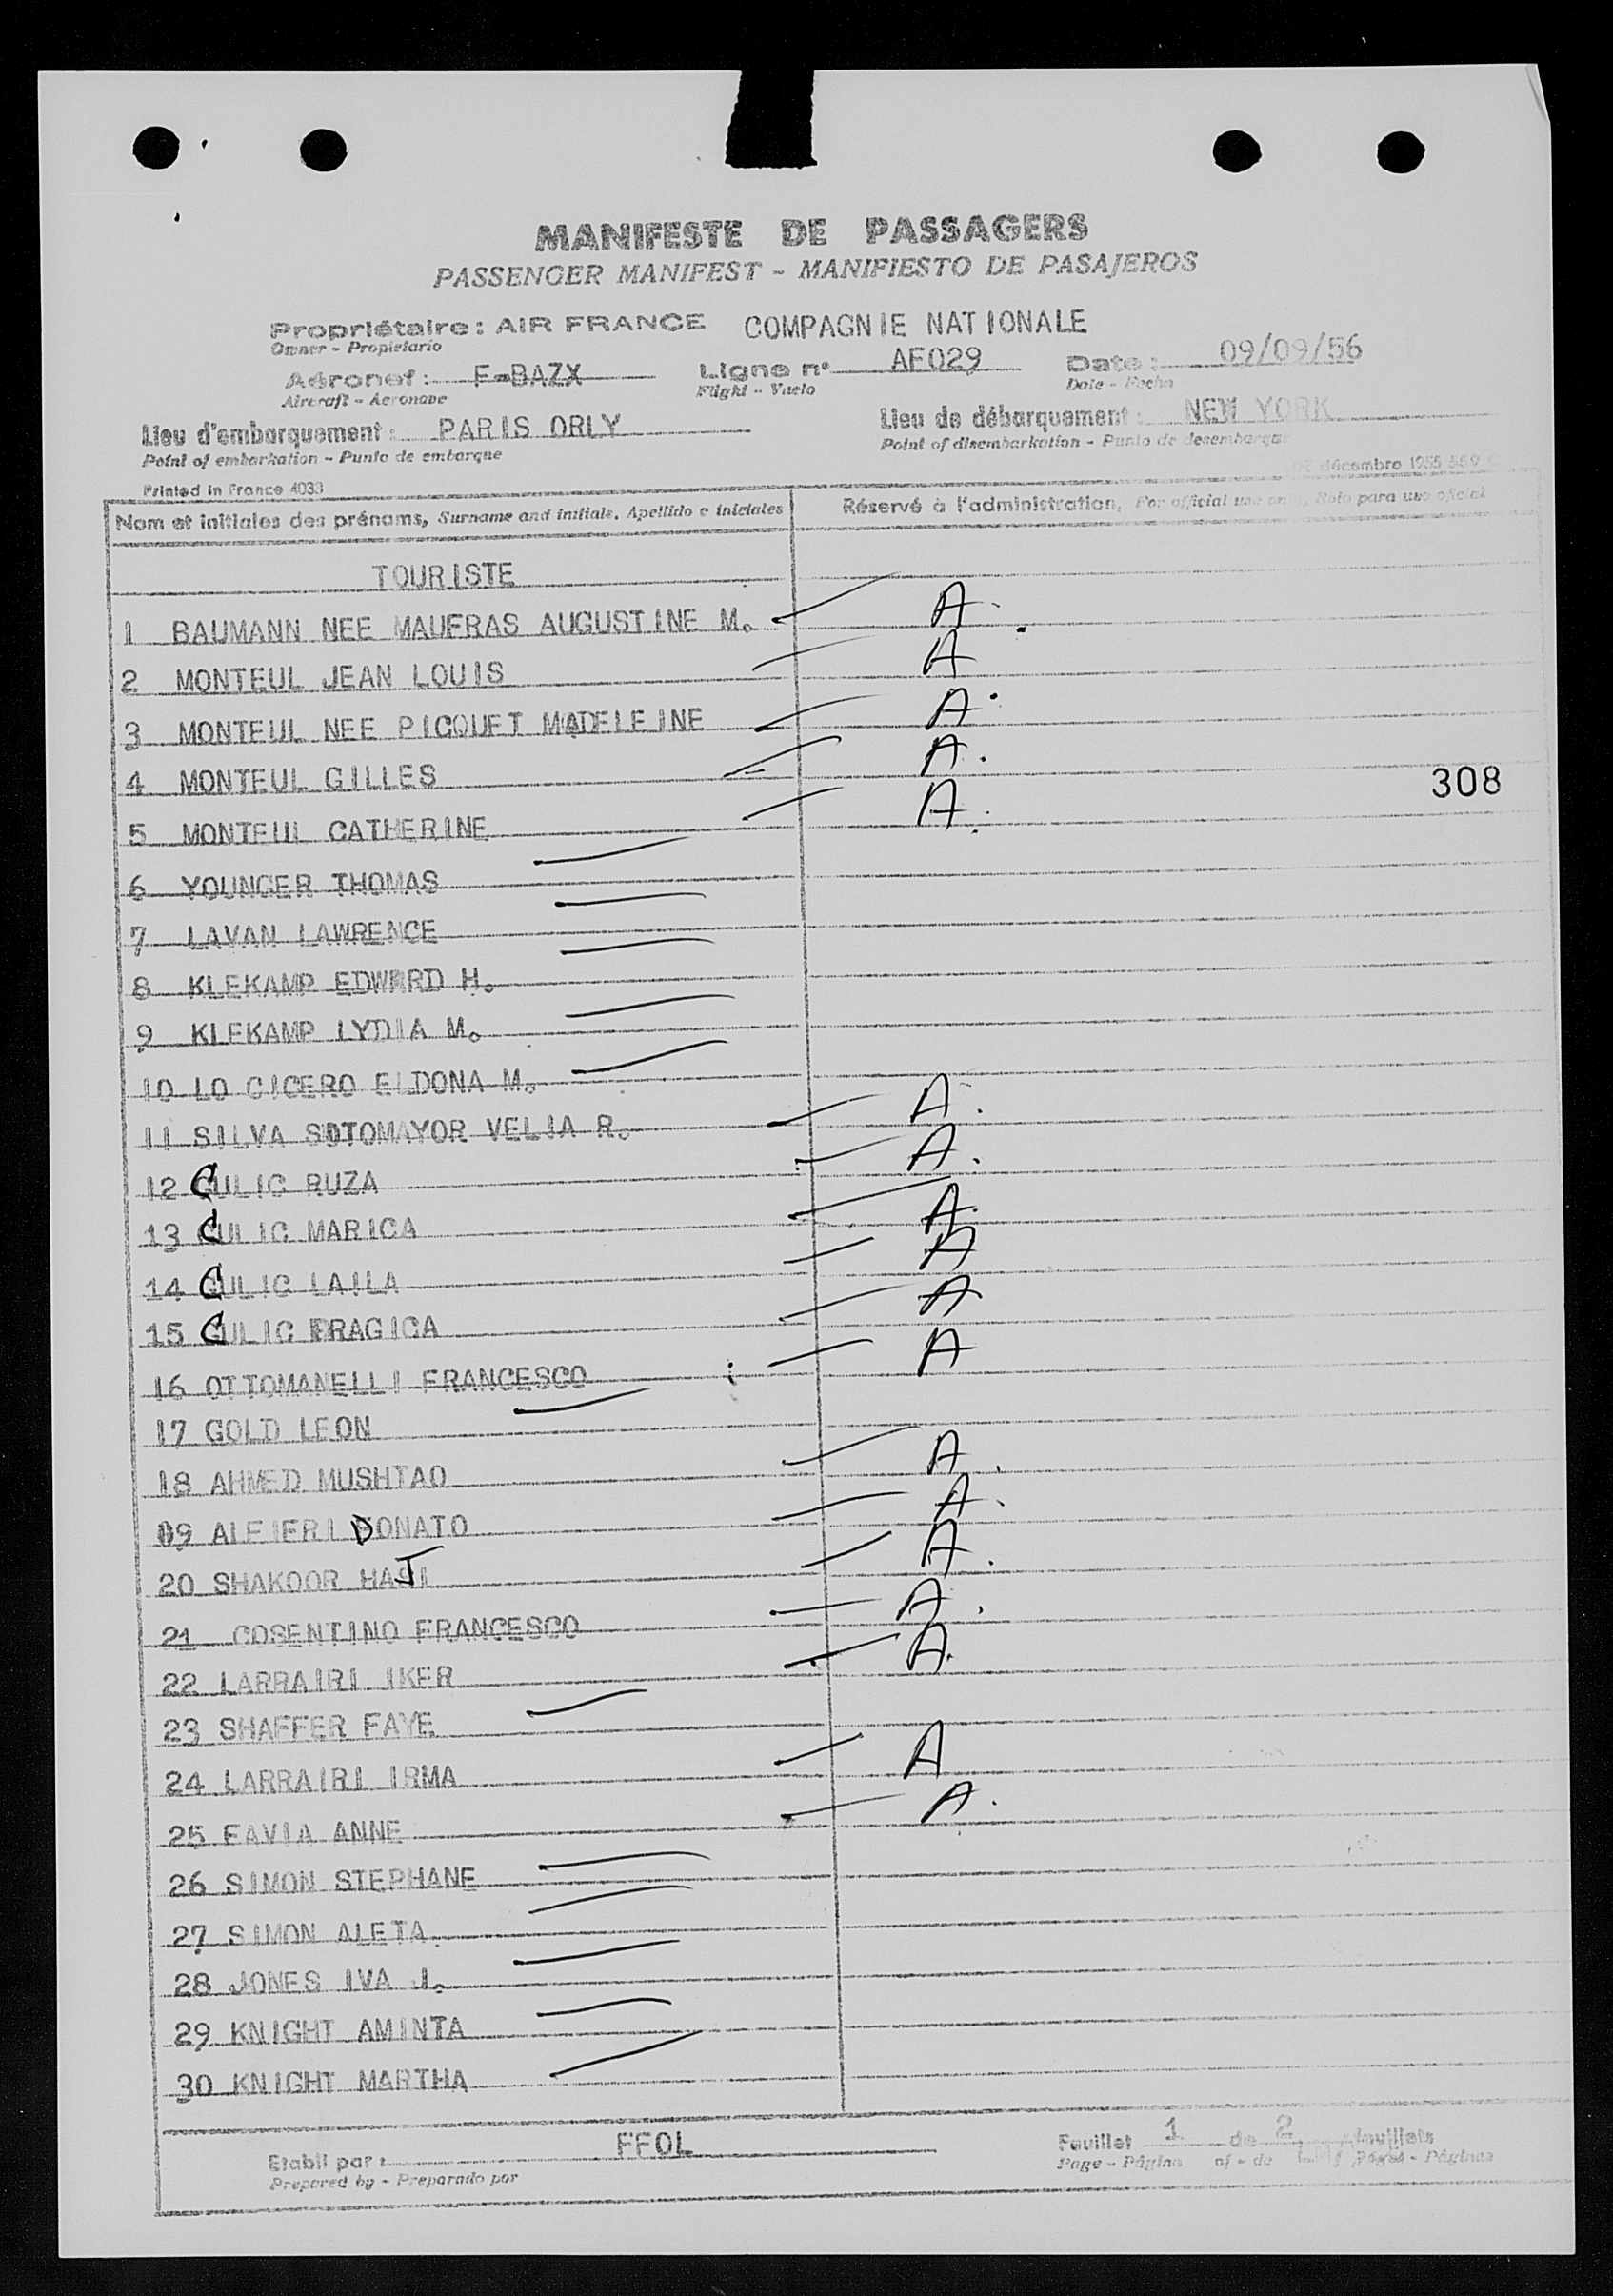 MANIFESTE DE PASSAGERS
PASSENGER MANIFEST - MANIFIESTO DE PASAJEROS
Propriétaire: AIR FRANCE COMPAGNIE NATIONALE
Owner - Propietario
Aéronef: F-BAZX Ligne n° AF029 Date: 09/09/56
Aircraft - Aeronave Flight - Vuelo Date - Fecha
Lieu d'embarquement: PARIS ORLY Lieu de débarquement: NEW YORK
Point of embarkation - Punto de embarque Point of disembarkation - Punto de desembarque
Printed in France 4033 décembre 1955
Nom et initiales des prénoms, Surname and initials. Apellido e iniciales Réservé à l'administration, For official use only, Solo para uso oficial
TOURISTE
1 BAUMANN NEE MAUFRAS AUGUSTINE M. A
2 MONTEUL JEAN LOUIS A
3 MONTEUL NEE PICQUET MADELEINE A
4 MONTEUL GILLES A
308
5 MONTEUL CATHERINE A
6 YOUNGER THOMAS
7 LAVAN LAWRENCE
8 KLEKAMP EDWARD H.
9 KLEKAMP LYDIA M.
10 LO CICERO ELDONA M.
11 SILVA SOTOMAYOR VELIA R. A
12 CULIC RUZA A
13 CULIC MARICA A
14 CULIC LAILA A
15 CULIC DRAGICA A
16 OTTOMANELLI FRANCESCO A
17 GOLD LEON
18 AHMED MUSHTAQ A
19 ALFIERI DONATO A
20 SHAKOOR HAJI A
21 COSENTINO FRANCESCO A
22 LARRAIRI IKER A
23 SHAFFER FAYE
24 LARRAIRI IRMA A
25 FAVIA ANNE A
26 SIMON STEPHANE
27 SIMON ALETA
28 JONES IVA J.
29 KNIGHT AMINTA
30 KNIGHT MARTHA
Etabli par: FFOL Feuillet 1 de 2 feuillets
Prepared by - Preparado por Page - Página of - de Pages - Páginas